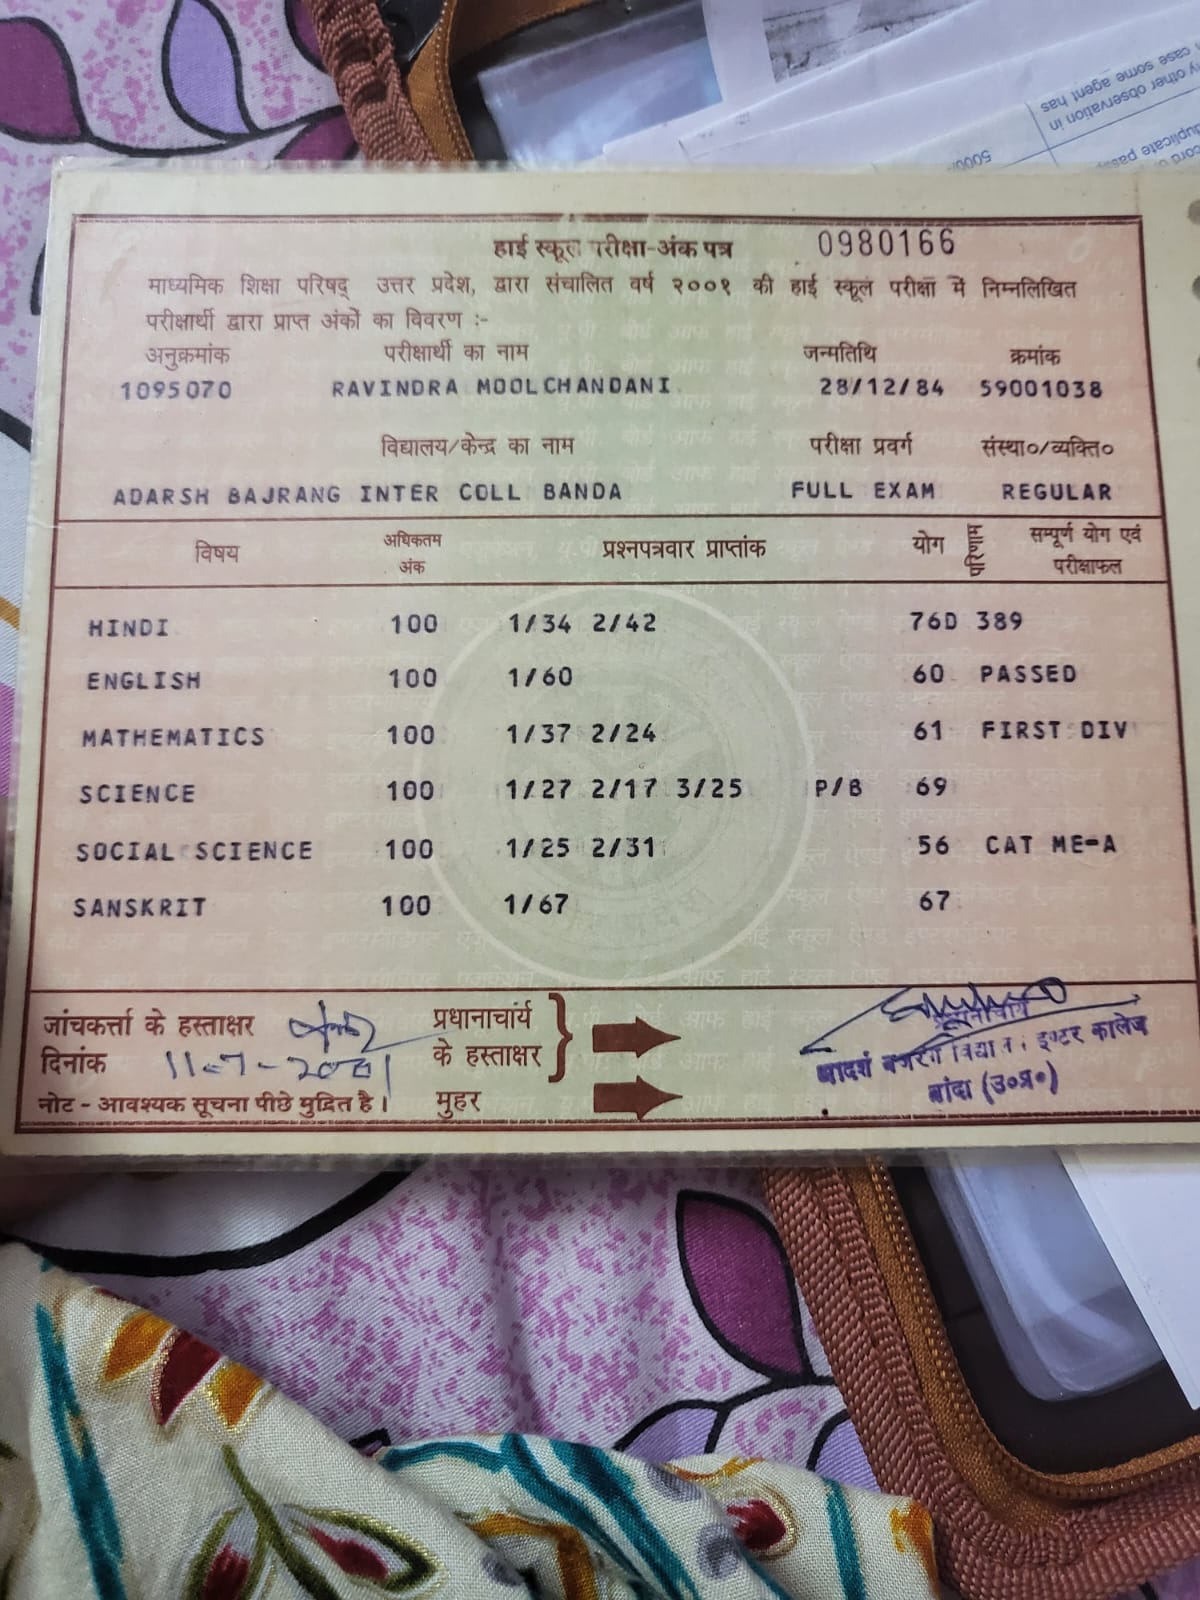 हाई स्कूल परीक्षा-अंक पत्र 0980166
माध्यमिक शिक्षा परिषद् उत्तर प्रदेश, द्वारा संचालित वर्ष २००१ की हाई स्कूल परीक्षा में निम्नलिखित
परीक्षार्थी द्वारा प्राप्त अंकों का विवरण :-
अनुक्रमांक परीक्षार्थी का नाम जन्मतिथि क्रमांक
1095070 RAVINDRA MOOLCHANDANI 28/12/84 59001038
विद्यालय/केन्द्र का नाम परीक्षा प्रवर्ग संस्था०/व्यक्ति०
ADARSH BAJRANG INTER COLL BANDA FULL EXAM REGULAR
विषय अधिकतम अंक प्रश्नपत्रवार प्राप्तांक योग परिणाम सम्पूर्ण योग एवं परीक्षाफल
HINDI 100 1/34 2/42 76D 389
ENGLISH 100 1/60 60 PASSED
MATHEMATICS 100 1/37 2/24 61 FIRST DIV
SCIENCE 100 1/27 2/17 3/25 P/B 69
SOCIAL SCIENCE 100 1/25 2/31 56 CAT ME-A
SANSKRIT 100 1/67 67
जांचकर्त्ता के हस्ताक्षर प्रधानाचार्य
दिनांक 11-7-2001 के हस्ताक्षर
नोट - आवश्यक सूचना पीछे मुद्रित है। मुहर
प्रधानाचार्य
आदर्श बजरंग इण्टर कालेज
बांदा (उ०प्र०)
any other observation in
case some agent has
5000